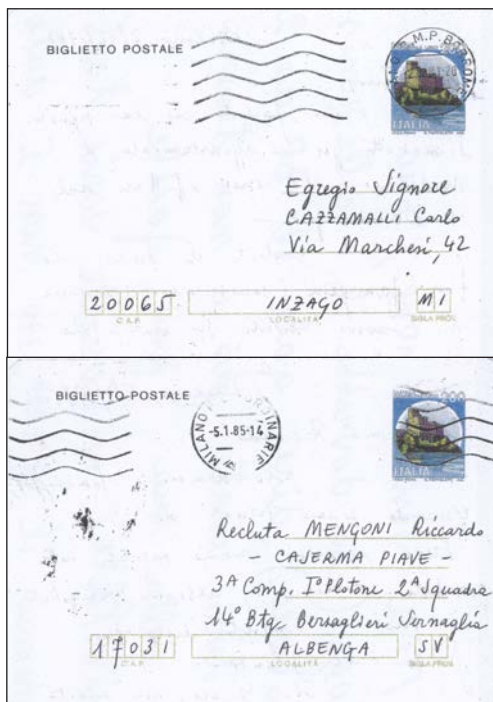 BIGLIETTO POSTALE
ITALIA
Egregio Signore
CAZZAMALLI Carlo
Via Marchesi, 42
20065 INZAGO MI
C.A.P. LOCALITÀ SIGLA PROV.
BIGLIETTO POSTALE
MILANO
-5.1.85-14
ITALIA
Recluta MENGONI Riccardo
- CASERMA PIAVE -
3A Comp. I° Plotone 2A Squadra
14° Btg. Bersaglieri Sernaglia
17031 ALBENGA SV
C.A.P. LOCALITÀ SIGLA PROV.